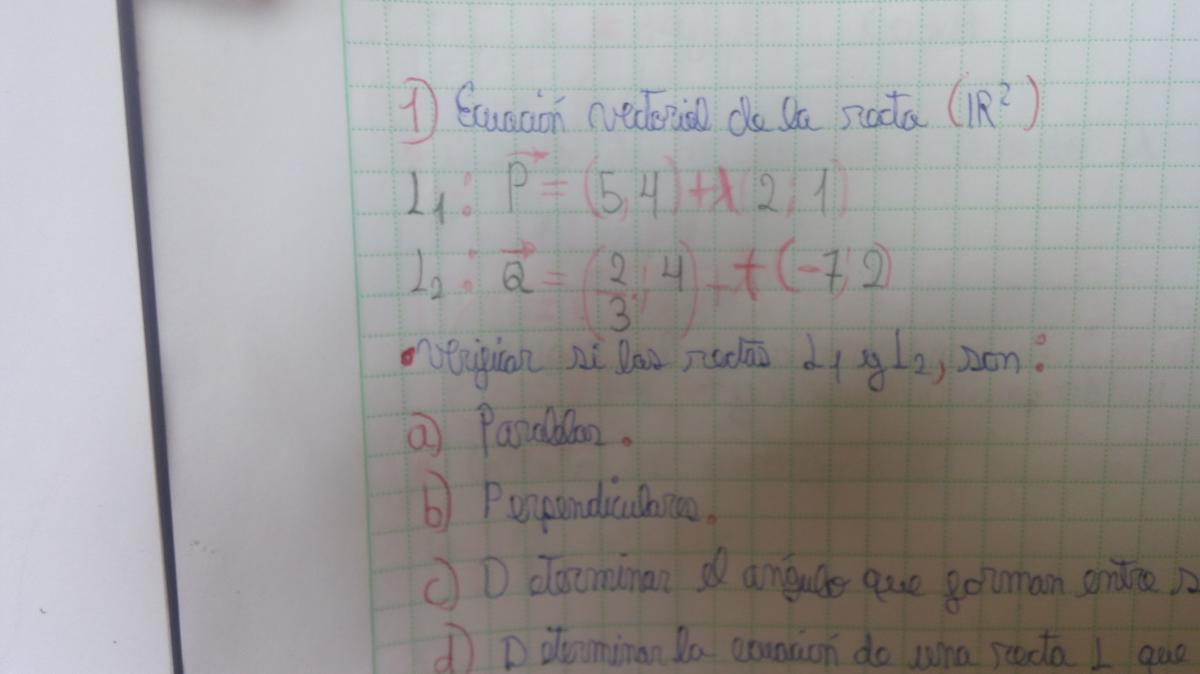 1) Ecuación vectorial de la recta (IR²)
L₁: P⃗ = (5; 4) + λ(2; 1)
L₂: Q⃗ = (2/3; 4) + t(-7; 2)
• Verificar si las rectas L₁ y L₂, son:
a) Paralelas.
b) Perpendiculares.
c) Determinar el ángulo que forman entre s
d) Determinar la ecuación de una recta L que